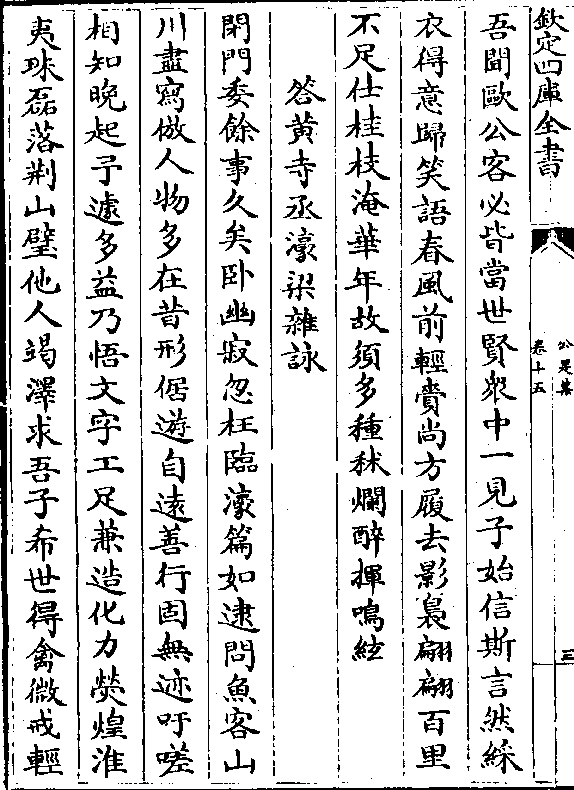 欽定四庫全書
公是集
卷十五
三
吾聞歐公客必皆當世賢衆中一見子始信斯言然綵
衣得意歸笑語春風前輕賷尚方履去影裊翩翩百里
不足仕桂枝淹華年故須多種秫爛醉揮鳴絃
答黄寺丞濠梁雜詠
閉門委餘事久矣卧幽寂忽枉臨濠篇如逮問魚客山
川盡寫倣人物多在昔形倨遊自遠善行固無迹吁嗟
相知晚起予遽多益乃悟文字工足兼造化力熒煌淮
夷珠磊落荆山璧他人竭澤求吾子希世得禽微戒輕